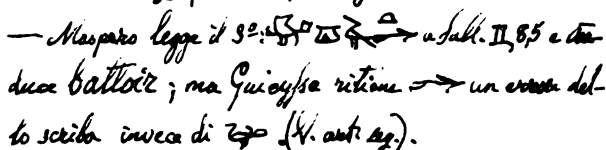 — Maspero legge il 3º: a Sall. II, 8,5 e tra-
duce battoir; ma Guieysse ritiene un errore del-
lo scriba invece di (V. art. seg.).